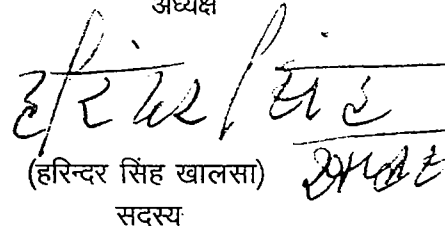 अध्यक्ष
हरिंदर सिंह
(हरिन्दर सिंह खालसा)
सदस्य